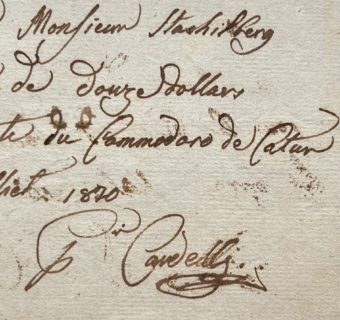 Monsieur Stachilberg
de douze dollars
te du Commodore de Catur
llet 1820
P. Cardelli.